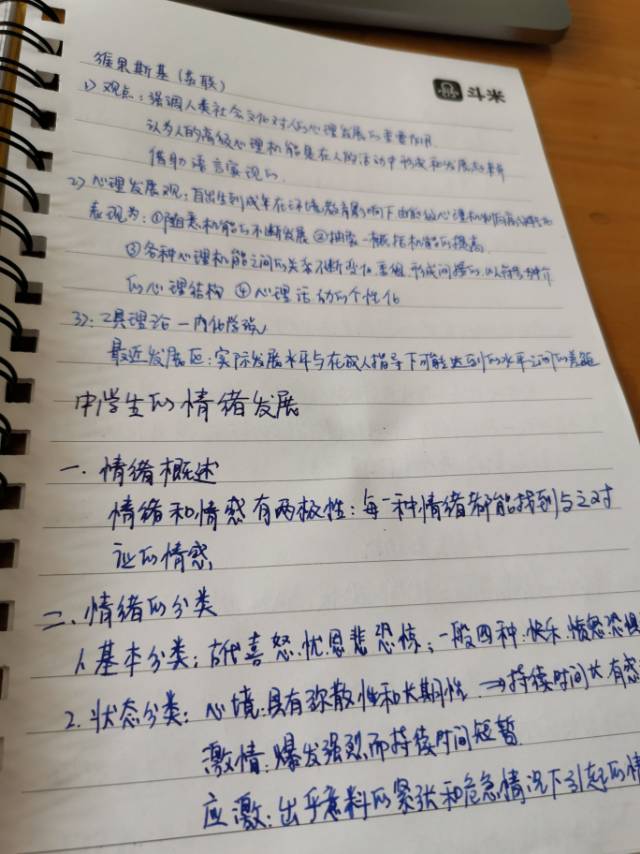 斗米
维果斯基(苏联)
1) 观点:强调人类社会文化对人的心理发展的重要作用
认为人的高级心理机能是在人的活动中形成和发展起来并
借助语言实现的.
2) 心理发展观:自出生到成年在环境教育影响下由低级心理机制向高级
表现为:①随意机能的不断发展 ②抽象一概括机能的提高
③各种心理机能之间的关系不断变化重组,形成间接的,以符号为中介
的心理结构 ④心理活动的个性化
3):工具理论—内化学说
最近发展区:实际发展水平与在成人指导下可能达到的水平之间的差距
中学生的情绪发展
一.情绪概述
情绪和情感有两极性:每一种情绪都能找到与之对
证的情感
二.情绪的分类
1.基本分类:古代喜.怒.忧.思.悲.恐.惊;一般四种:快乐.愤怒.恐惧
2.状态分类:心境:具有弥散性和长期性.→持续时间长有感
激情:爆发强烈而持续时间短暂
应激:出乎意料的紧张和危急情况下引起的情